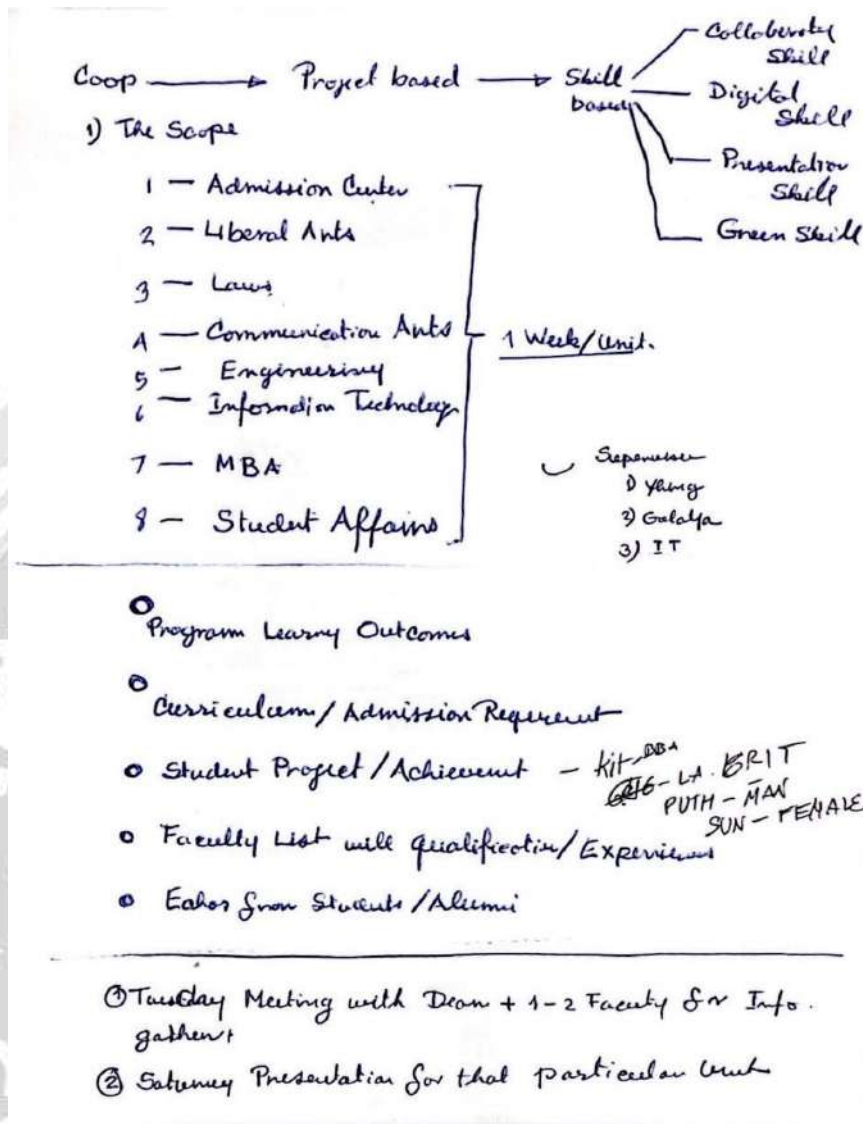 Coop → Project based → Skill based
Collaborative Skill
Digital Skill
Presentation Skill
Green Skill
1) The Scope
1 — Admission Center
2 — Liberal Arts
3 — Laws
4 — Communication Arts
5 — Engineering
6 — Information Technology
7 — MBA
8 — Student Affairs
1 Week/Unit.
Supervisor
1)
2)
3) IT
Program Learning Outcomes
Curriculum/Admission Requirement
Student Project/Achievement — Kit - BBA
- LA. BRIT
PUTH - MAN
SUN - FEMALE
Faculty List with qualification/Experiences
from Students/Alumni
① Tuesday Meeting with Dean + 1-2 Faculty for Info.
gathering
② Saturday Presentation for that particular Unit